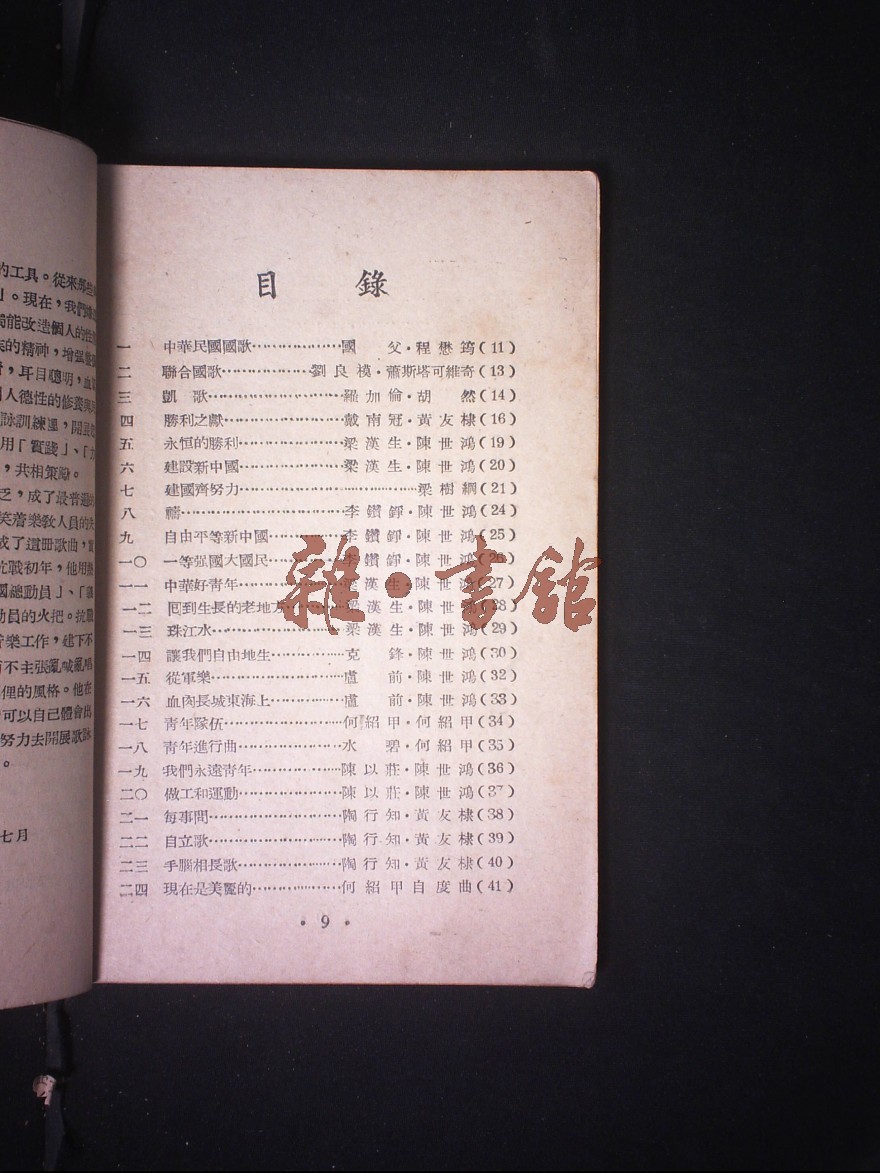 的工具。從來那些
」。現在，我們
能改造個人的性
族的精神，增强
，耳目聰明，血
人德性的修養與
詠訓練裡，開
用「實踐」、「力
，共相策勵。
乏，成了最普遍的
笑着樂教人員的
成了這册歌曲，
抗戰初年，他用
國總動員」、「
動員的火把。抗戰
音樂工作，建下不
而不主張亂喊亂唱
俚的風格。他在
可以自己體會出
努力去開展歌詠
。
七月
目錄
一 中華民國國歌………………國父・程懋筠(11)
二 聯合國歌………………劉良模・蕭斯塔可維奇(13)
三 凱歌………………羅加倫・胡然(14)
四 勝利之獻………………戴南冠・黃友棣(16)
五 永恒的勝利………………梁漢生・陳世鴻(19)
六 建設新中國………………梁漢生・陳世鴻(20)
七 建國齊努力………………梁樹綱(21)
八 禱………………李鑽錚・陳世鴻(24)
九 自由平等新中國………………李鑽錚・陳世鴻(25)
一〇 一等强國大國民………………李鑽錚・陳世鴻(26)
一一 中華好青年………………梁漢生・陳世鴻(27)
一二 囘到生長的老地方………………梁漢生・陳世鴻(28)
一三 珠江水………………梁漢生・陳世鴻(29)
一四 讓我們自由地生………………克鋒・陳世鴻(30)
一五 從軍樂………………盧前・陳世鴻(32)
一六 血肉長城東海上………………盧前・陳世鴻(33)
一七 青年隊伍………………何紹甲・何紹甲(34)
一八 青年進行曲………………水碧・何紹甲(35)
一九 我們永遠青年………………陳以莊・陳世鴻(36)
二〇 做工和運動………………陳以莊・陳世鴻(37)
二一 每事問………………陶行知・黃友棣(38)
二二 自立歌………………陶行知・黃友棣(39)
二三 手腦相長歌………………陶行知・黃友棣(40)
二四 現在是美麗的………………何紹甲自度曲(41)
・9・
雜・書館